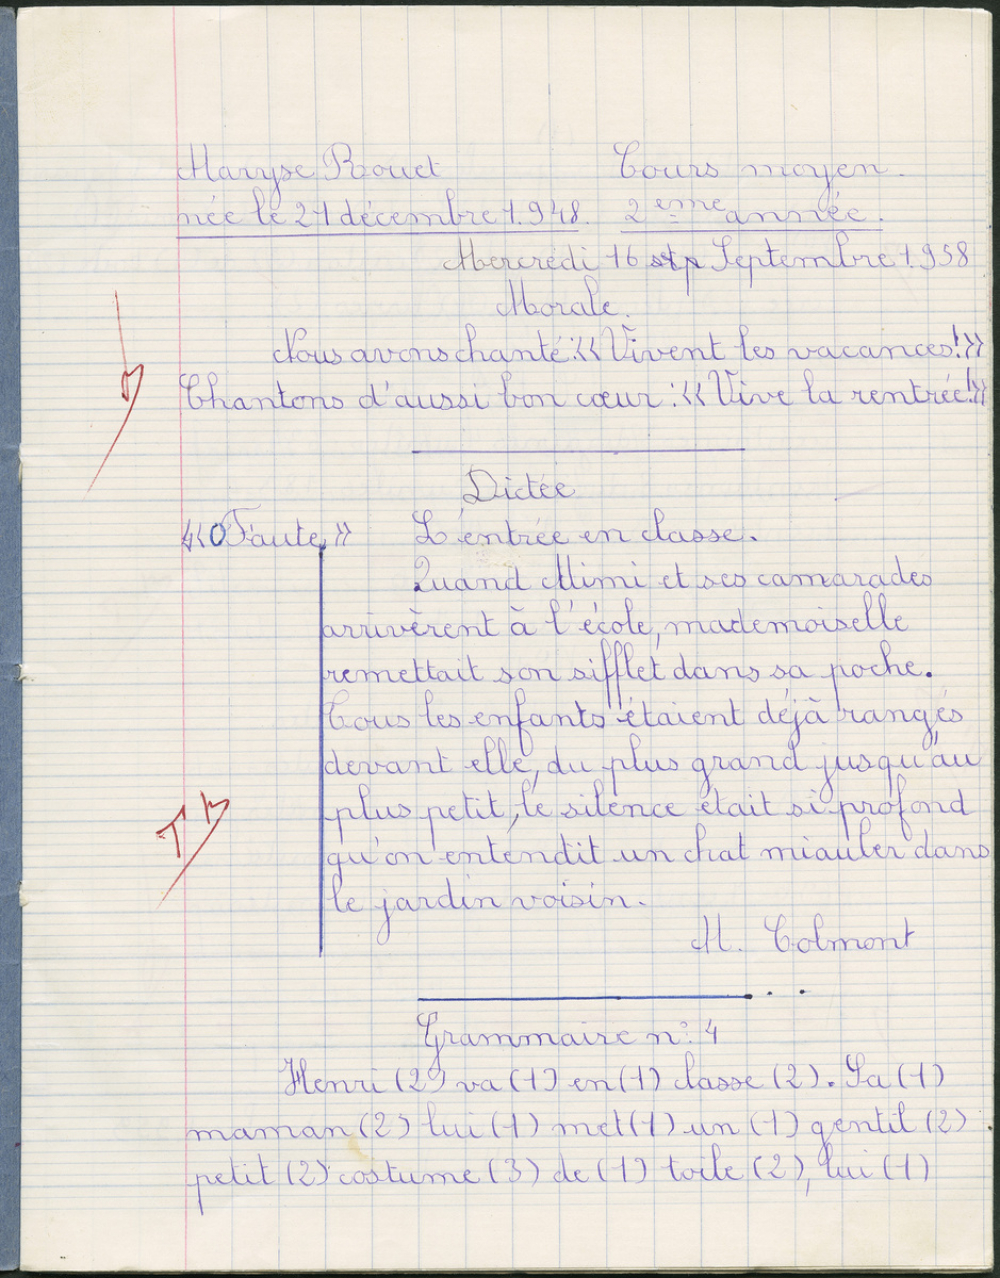 Maryse Rouet Cours moyen.
née le 21 décembre 1.948. 2ème année.
Mercredi 16 Septembre 1.958
Morale.
Nous avons chanté : « Vivent les vacances! »
Chantons d'aussi bon cœur : « Vive la rentrée! »
B
Dictée
« 0 Faute » L'entrée en classe.
Quand Mimi et ses camarades
arrivèrent à l'école, mademoiselle
remettait son sifflet dans sa poche.
Tous les enfants étaient déjà rangés
devant elle, du plus grand jusqu'au
plus petit, le silence était si profond
TB
qu'on entendit un chat miauler dans
le jardin voisin.
M. Colmont
Grammaire n: 4
Henri (2) va (1) en (1) classe (2). Sa (1)
maman (2) lui (1) met (1) un (1) gentil (2)
petit (2) costume (3) de (1) toile (2), lui (1)